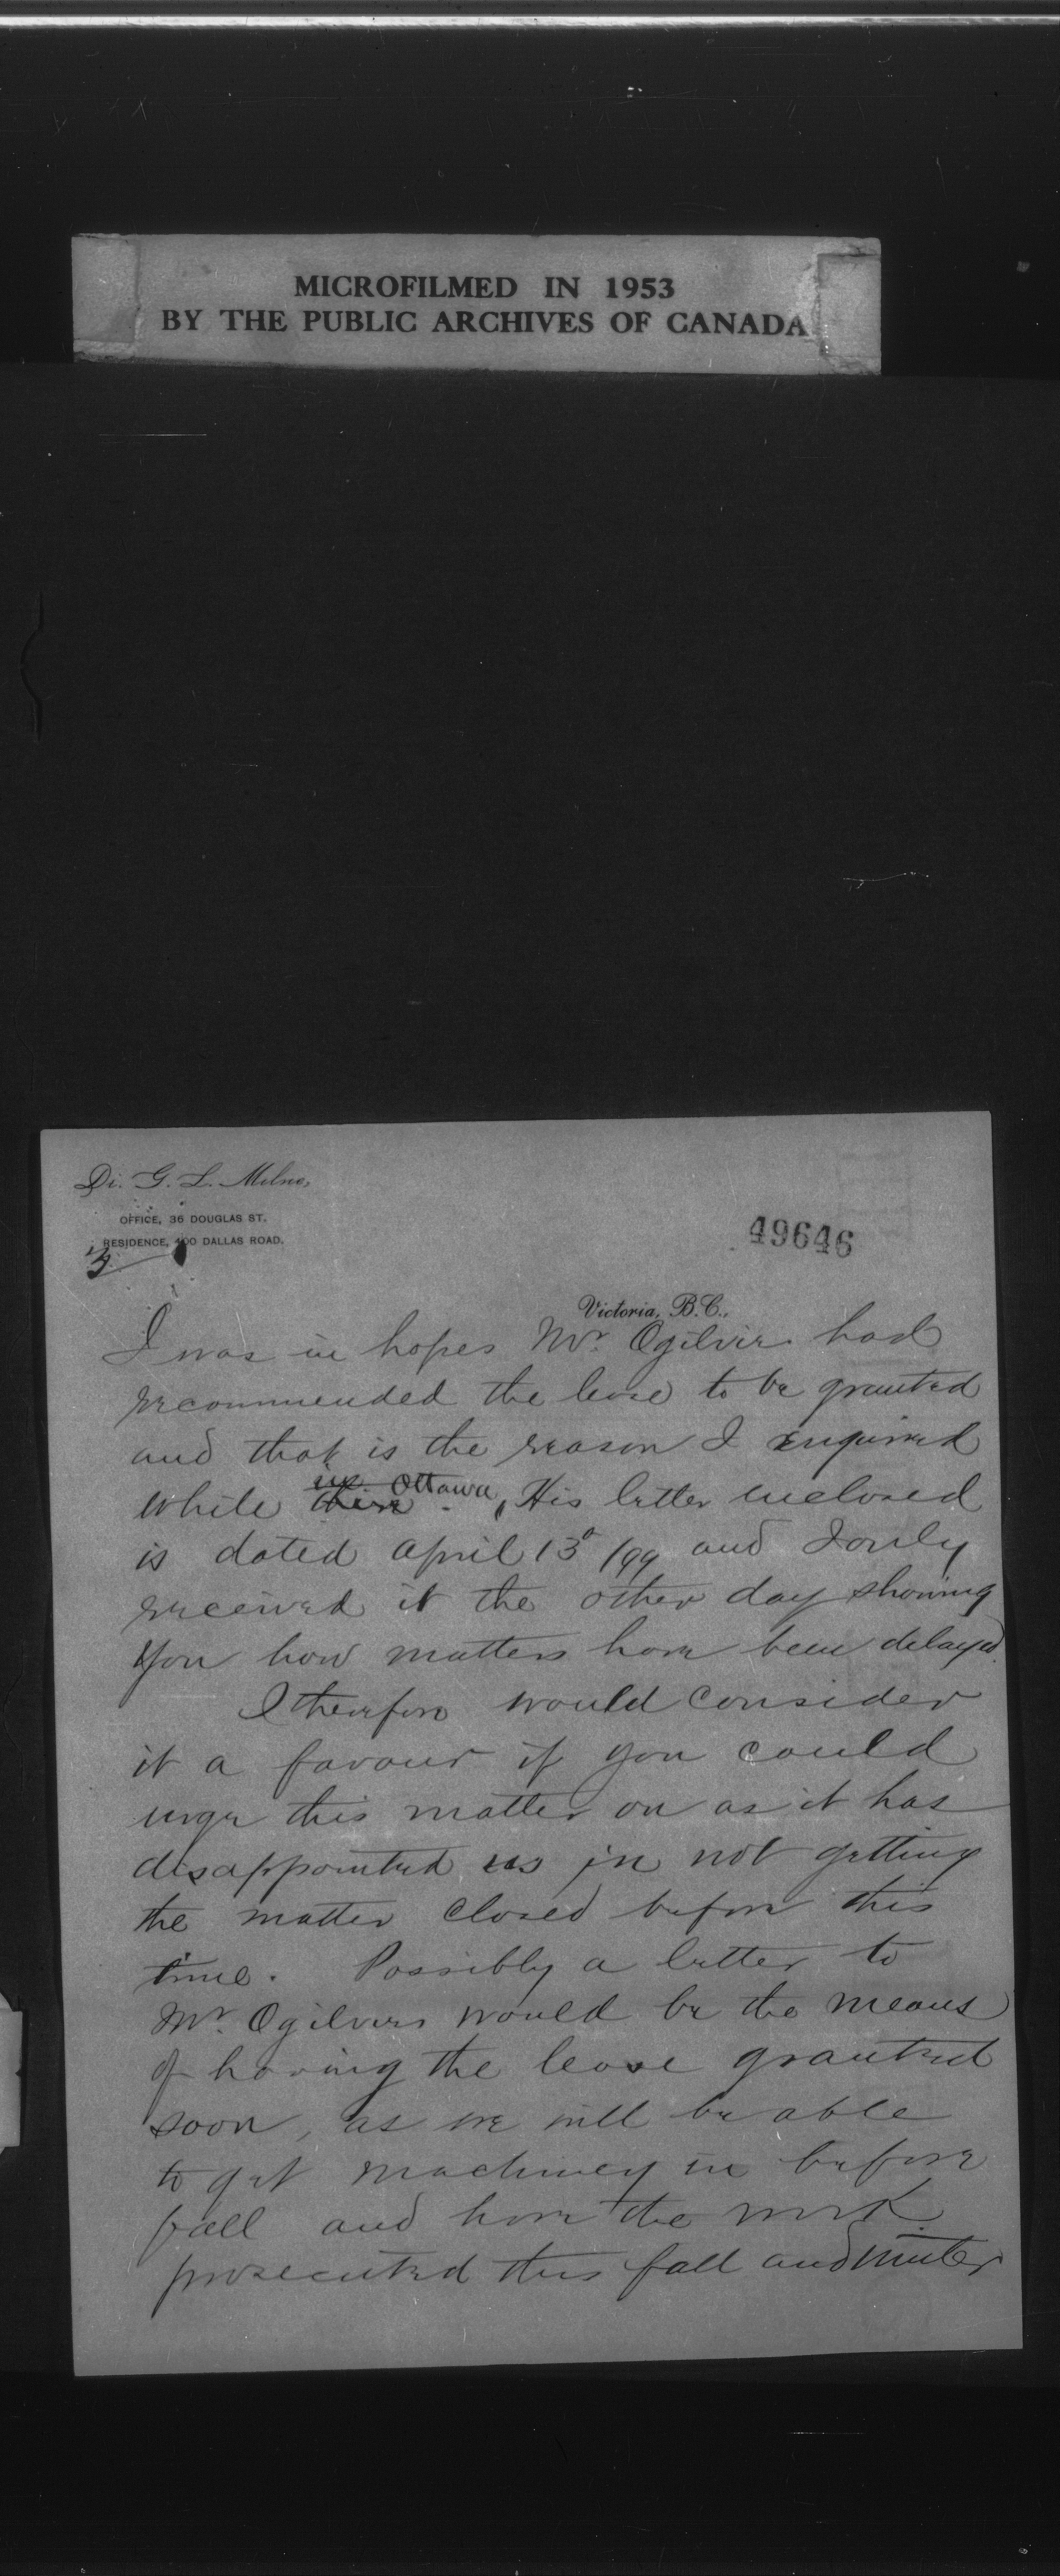 MICROFILMED IN 1953
BY THE PUBLIC ARCHIVES OF CANADA
Dr. G. L. Milne,
OFFICE, 36 DOUGLAS ST.
RESIDENCE, 400 DALLAS ROAD.
49646
3
Victoria, B.C.,
I was in hopes Mr. Ogilvie had
recommended the lease to be granted
and that is the reason I enquired
while in Ottawa, His letter enclosed
is dated April 13 /99 and I only
received it the other day showing
you how matters have been delayed.
I therefore would consider
it a favour if you could
urge this matter on as it has
disappointed us in not getting
the matter closed before this
time. Possibly a letter to
Mr. Ogilvie would be the means
of having the lease granted
soon, as we will be able
to get machinery in before
fall and have the work
prosecuted this fall and winter